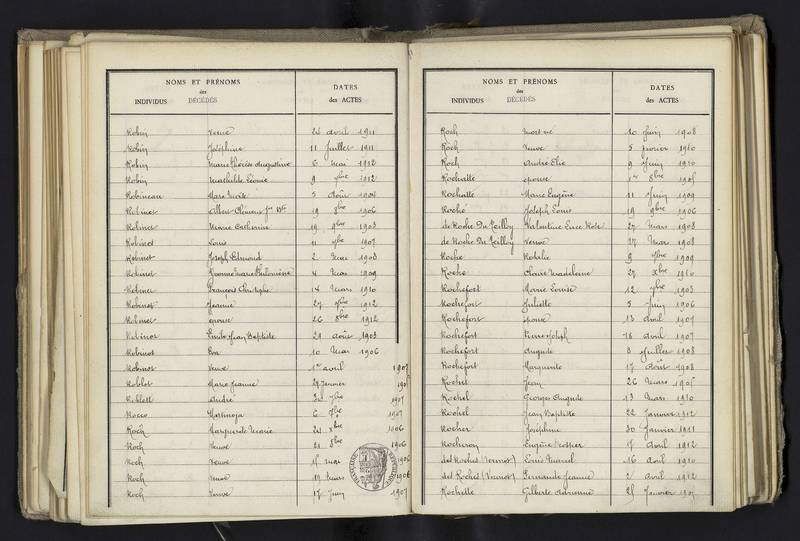 NOMS ET PRÉNOMS
des
INDIVIDUS DÉCÉDÉS
DATES
des ACTES
Robin Veuve 24 avril 1911
Robin Joséphine 11 Juillet 1911
Robin Marie Thérèse Augustine 6 Mai 1912
Robin Mathilde Léonie 9 9bre 1912
Robineau 5 Août 1904
Robinet 19 8bre 1906
Robinet Marie Catherine 19 9bre 1903
Robinet Louis 11 1907
Robinet Joseph Edmond 2 Mai 1908
Robinet Jeanne Marie Philomène 4 Mai 1909
Robinet François Christophe 14 Mars 1910
Robinet Jeanne 27 1912
Robinet épouse 26 1912
Robinot Jean Baptiste 29 août 1903
Robinot 10 Mai 1906
Robinot Veuve 1er avril 1907
Roblot Marie Jeanne 29 Janvier
Roblot André 1907
Rocco 6 1907
Roch Marguerite Marie 1906
Roch Veuve 21 8bre 1906
Roch Veuve 15 Mai 1906
Roch 19 Mars 1906
Roch Veuve 17 Juin 1907
NOMS ET PRÉNOMS
des
INDIVIDUS DÉCÉDÉS
DATES
des ACTES
Roch Mort né 10 Juin 1908
Roch Veuve 5 février 1910
Roch André Elie 9 Juin 1910
Rochatte épouse 1er 8bre 1905
Rochatte Marie Eugène 11 Juin 1909
Roché Joseph Louis 19 9bre 1906
de Roche Du Teilloy Valentine Luce Rose 27 Mars 1903
de Roche Du Teilloy Veuve 27 Mars 1908
Roche Natalie 9 1909
Roche Claire Madeleine 27 Xbre 1910
Rochefort Marie Louise 12 1903
Rochefort Juliette 5 Juin 1906
Rochefort épouse 13 avril 1907
Rochefort Pierre Joseph 18 avril 1907
Rochefort Auguste 8 Juillet 1908
Rochefort Marguerite 17 Août 1908
Rochel Jean 26 Mars 1905
Rochel Georges Auguste 13 Mars 1910
Rochel Jean Baptiste 22 Janvier 1912
Rocher Joséphine 30 Janvier 1911
Rocheron Eugène Prosper 17 Avril 1912
des Roches Louis Marcel 16 Avril 1910
des Roches Fernande Jeanne 2 avril 1912
Rochette Gilberte Adrienne 25 Janvier